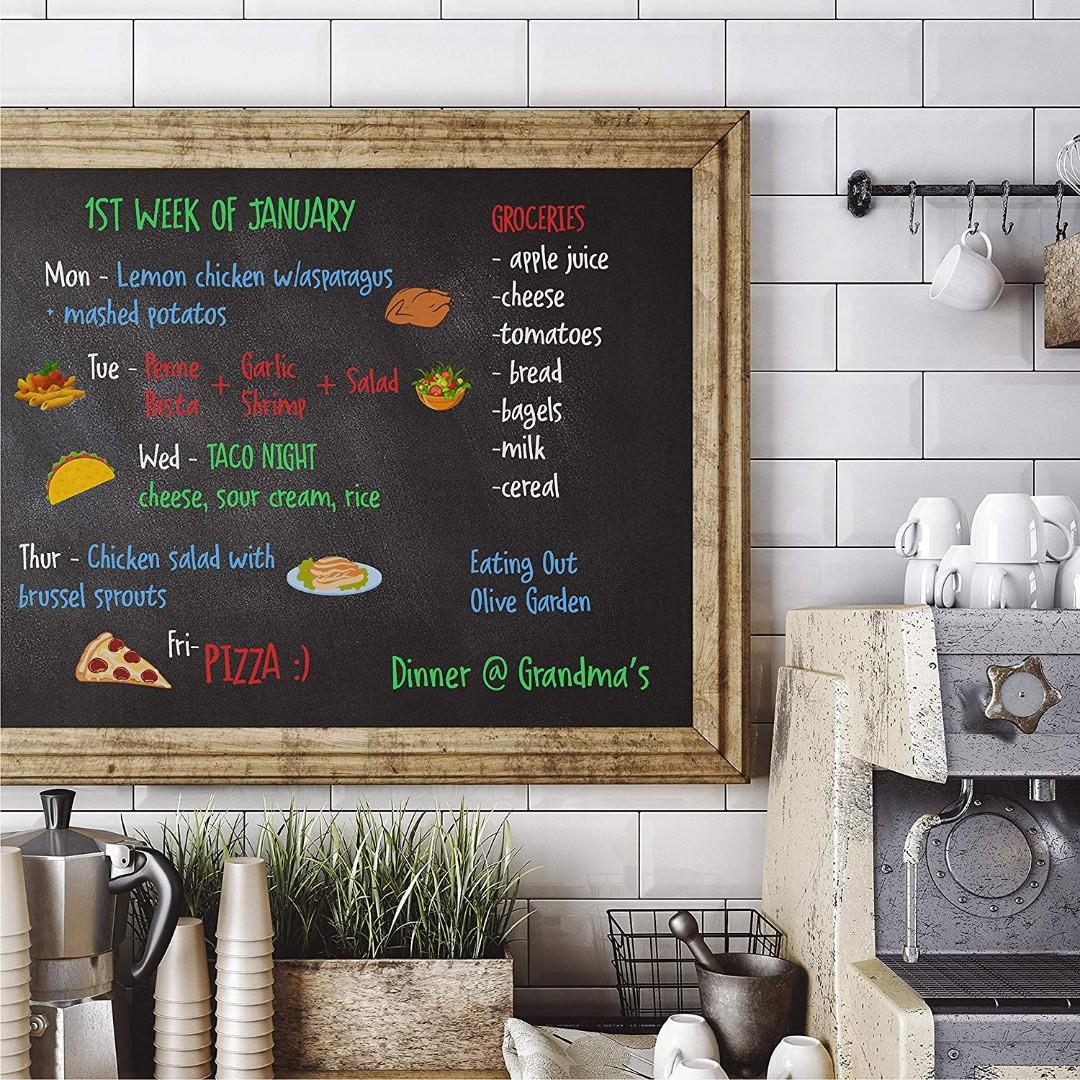 1ST WEEK OF JANUARY
Mon - Lemon chicken w/asparagus
+ mashed potatos
Tue - Penne Pasta + Garlic Shrimp + Salad
Wed - TACO NIGHT
cheese, sour cream, rice
Thur - Chicken salad with
brussel sprouts
Fri- PIZZA :)
GROCERIES
- apple juice
-cheese
-tomatoes
- bread
-bagels
-milk
-cereal
Eating Out
Olive Garden
Dinner @ Grandma's